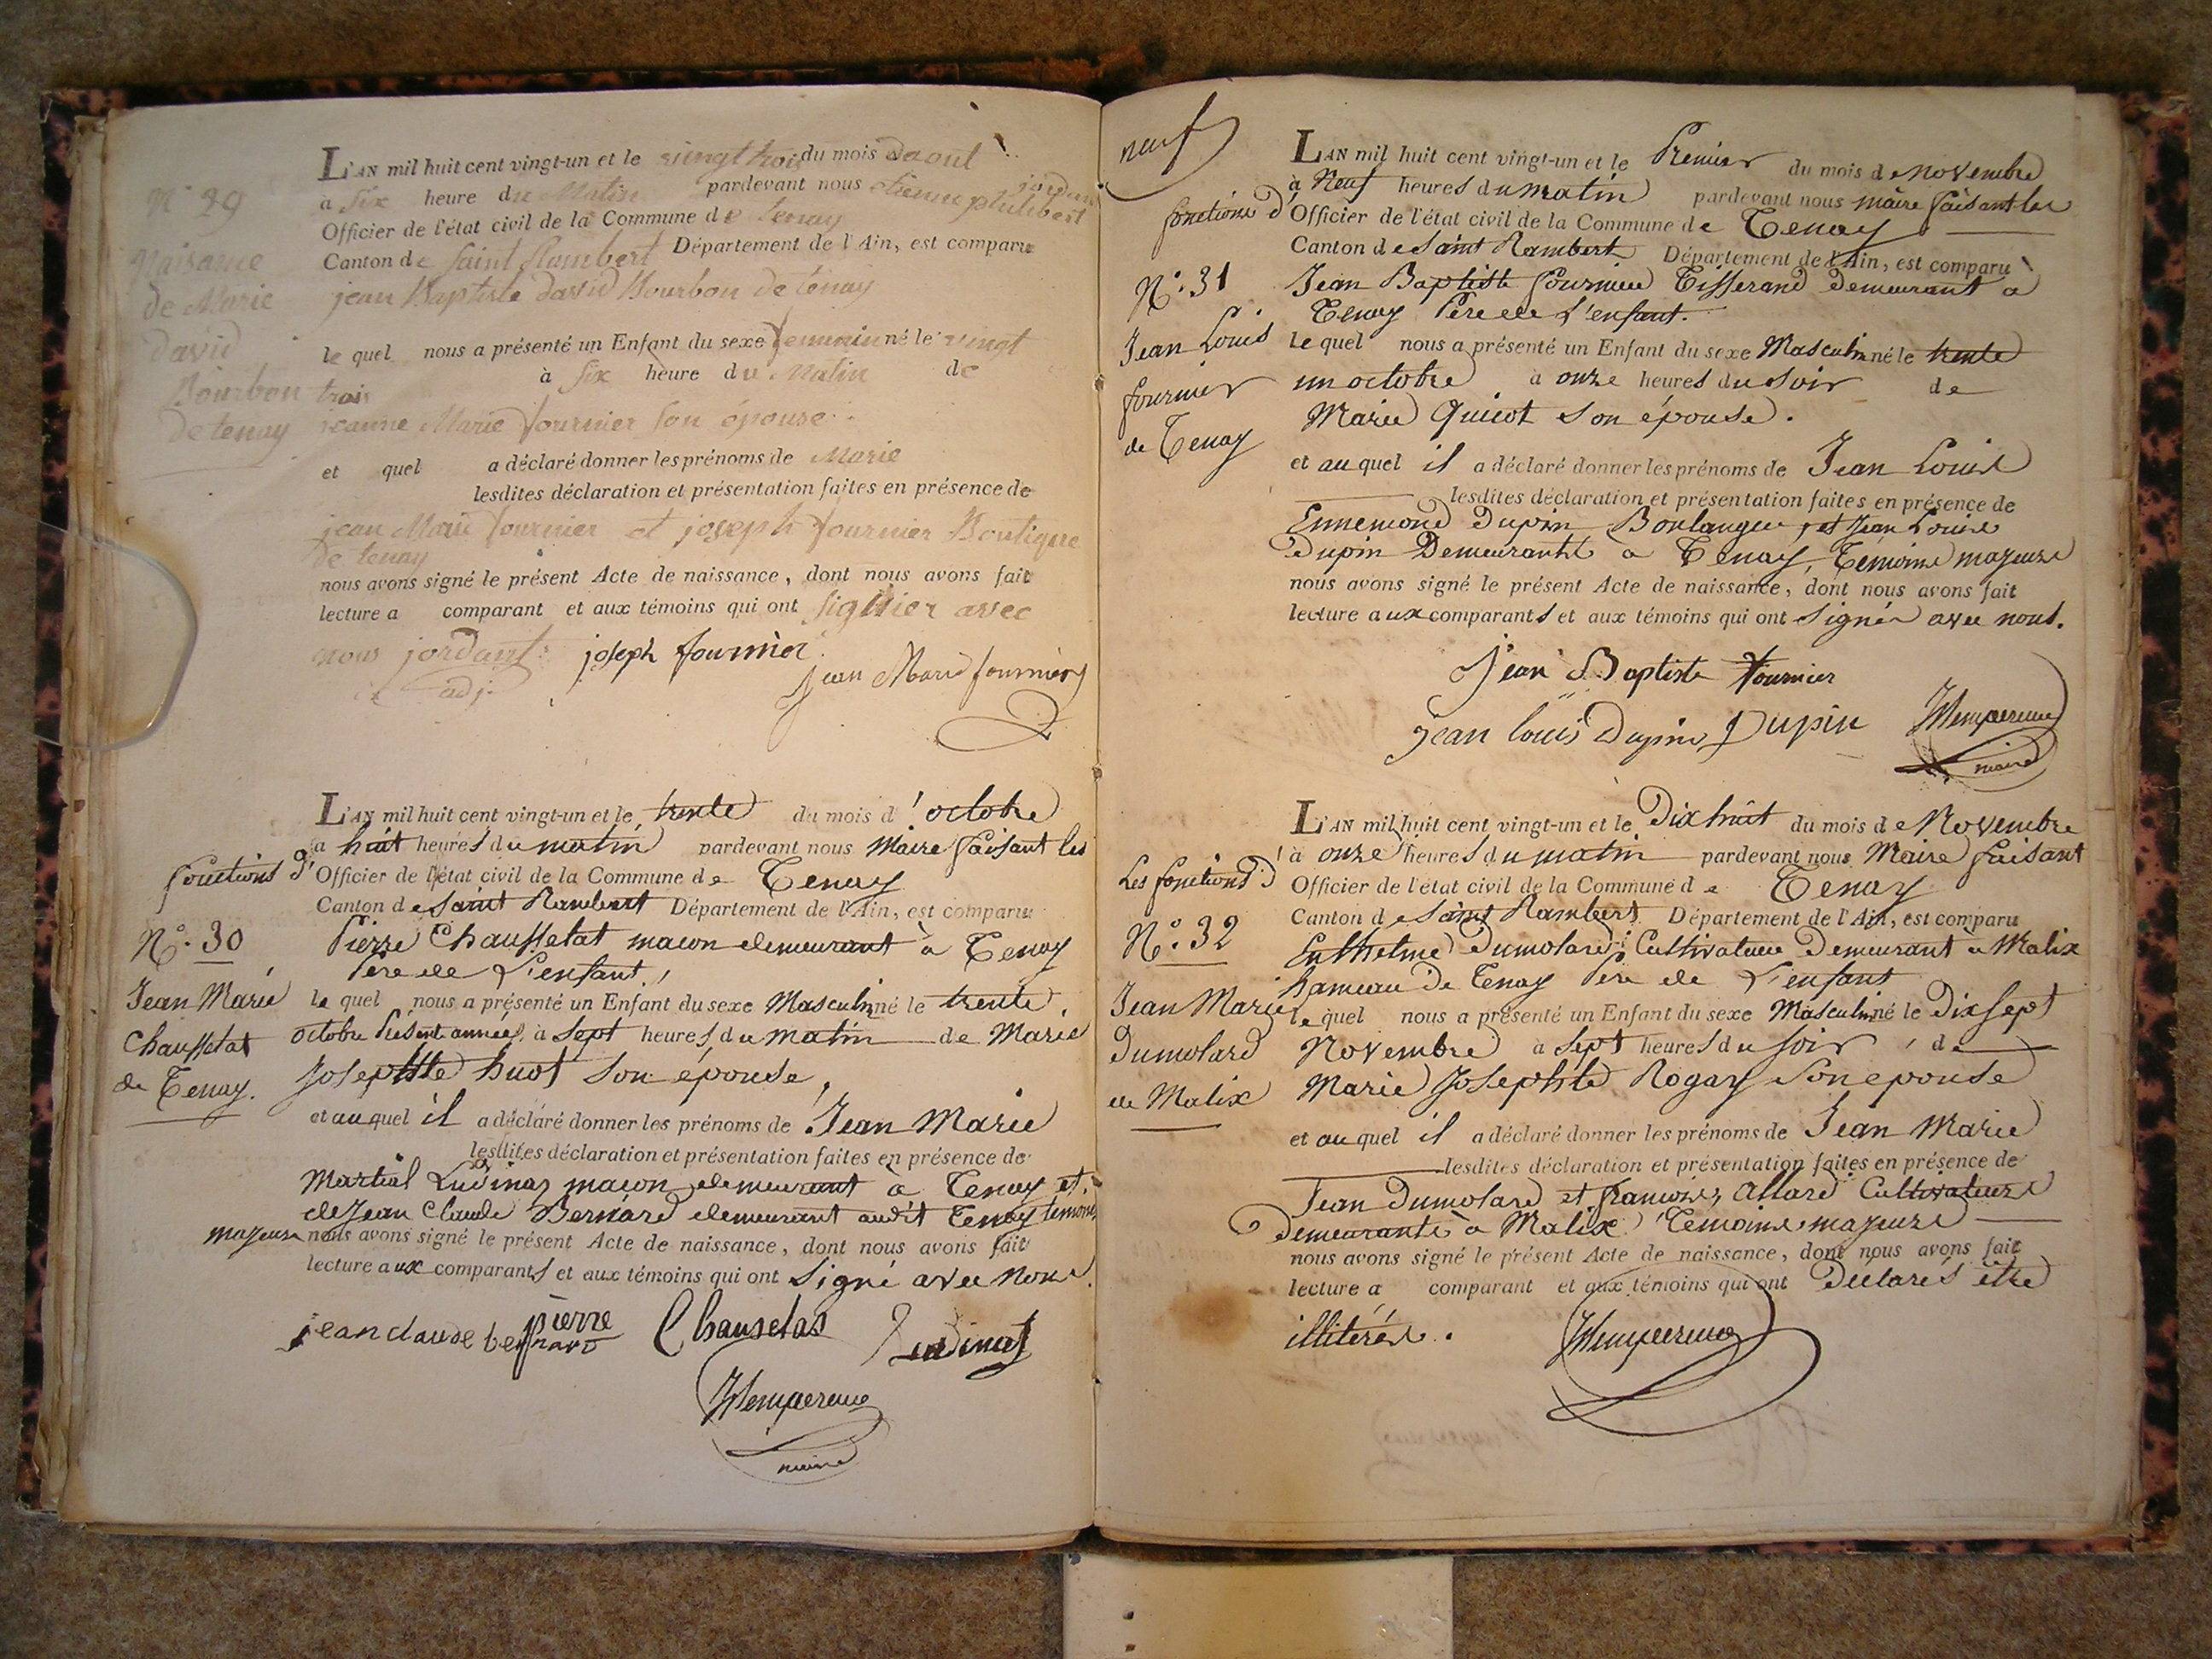 L'AN mil huit cent vingt-un et le vingt trois du mois daout
a six heure du Matin pardevant nous etienne philibert jordan
Officier de l'état civil de la Commune de tenay
Canton de Saint Rambert Département de l'Ain, est comparu
N° 29
Naisance
de Marie
david
Bourbon
de tenay
jean Baptiste david Bourbon de tenay
le quel nous a présenté un Enfant du sexe femminin né le vingt
trois à six heure du Matin de
jeanne Marie fournier son épouse
et quel a déclaré donner les prénoms de Marie
lesdites déclaration et présentation faites en présence de
jean Marie fournier et joseph fournier
de tenay
nous avons signé le présent Acte de naissance, dont nous avons fait
lecture a comparant et aux témoins qui ont signier avec
nous jordant joseph fournier
adj. jean Marie fournier
L'AN mil huit cent vingt-un et le trente du mois d'octobre
à huit heures du matin pardevant nous Maire faisant les
fonctions d' Officier de l'état civil de la Commune de Tenay
Canton de Saint Rambert Département de l'Ain, est comparu
N°. 30
Jean Marie
Chaussetat
de Tenay.
Pierre Chaussetat macon demeurant à Tenay
Pere de L'enfant
le quel nous a présenté un Enfant du sexe Masculin né le trente
octobre Présent année, à Sept heures du matin de Marie
Josephte huot son épouse
et auquel il a déclaré donner les prénoms de Jean Marie
lesdites déclaration et présentation faites en présence de
Martial Ludinas macon demeurant à Tenay et
de Jean Claude Bernard demeurant audit Tenay témoins
majeurs nous avons signé le présent Acte de naissance, dont nous avons fait
lecture aux comparants et aux témoins qui ont Signé avec nous.
jean claude bernard pierre Chausetas
maire
neuf
L'AN mil huit cent vingt-un et le Premier du mois de Novembre
à Neuf heures du matin pardevant nous maire faisant les
fonctions d' Officier de l'état civil de la Commune de Tenay
Canton de Saint Rambert Département de l'Ain, est comparu
N°. 31
Jean Louis
fournier
de Tenay
Jean Baptiste fournier Tisserand Demeurant a
Tenay Pere de L'enfant.
le quel nous a présenté un Enfant du sexe Masculin né le trente
un octobre à onze heures du soir de
Marie Quicot son épouse.
et auquel il a déclaré donner les prénoms de Jean Louis
lesdites déclaration et présentation faites en présence de
Ennemond Dupin Boulanger, et Jean Louis
Dupin Demeurants a Tenay, Témoins majeurs
nous avons signé le présent Acte de naissance, dont nous avons fait
lecture aux comparants et aux témoins qui ont signés avec nous.
jean Baptiste fournier
jean louis Dupin Dupin
maire
L'AN mil huit cent vingt-un et le Dix huit du mois de Novembre
à onze heures du matin pardevant nous Maire faisant
Les fonctions d' Officier de l'état civil de la Commune de Tenay
Canton de Saint Rambert Département de l'Ain, est comparu
N°. 32
Jean Marie
Dumolard
de Malix
Enthelme Dumolard Cultivateur Demeurant a Malix
hameau de Tenay Pere de L'enfant
le quel nous a présenté un Enfant du sexe Masculin né le Dix Sept
Novembre a Sept heures du soir de
Marie Josephte Rogay Son epouse
et au quel il a déclaré donner les prénoms de Jean Marie
lesdites déclaration et présentation faites en présence de
Jean Dumolard et francois Allard Cultivateurs
Demeurants à Malix Témoins majeurs
nous avons signé le présent Acte de naissance, dont nous avons fait
lecture a comparant et aux témoins qui ont Déclarés être
illitérés.